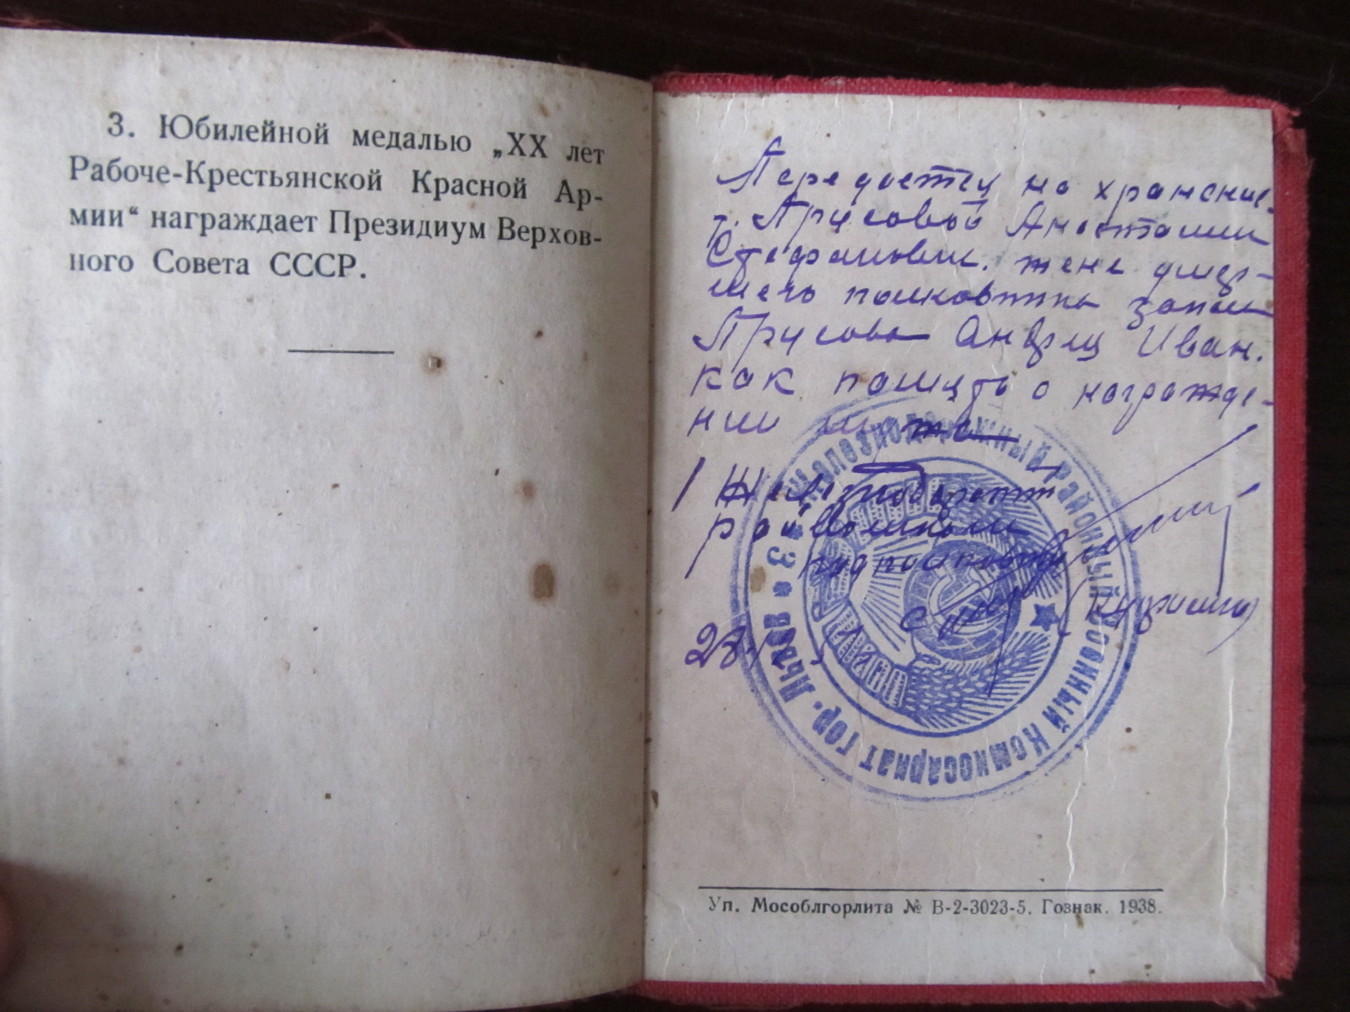 3. Юбилейной медалью „XX лет
Рабоче-Крестьянской Красной Ар-
мии“ награждает Президиум Верхов-
ного Совета СССР.
Передается на хранение
т. Прусовой Анастасии
Стефановне, жене умер-
шего полковника запаса
Прусова Андрея Иван.
как память о награжде-
нии
Железнодорожн
райвоенком
подполковник
28/
Железнодорожный районный Военный Комиссариат гор. Львова
Уп. Мособлгорлита № В-2-3023-5. Гознак. 1938.